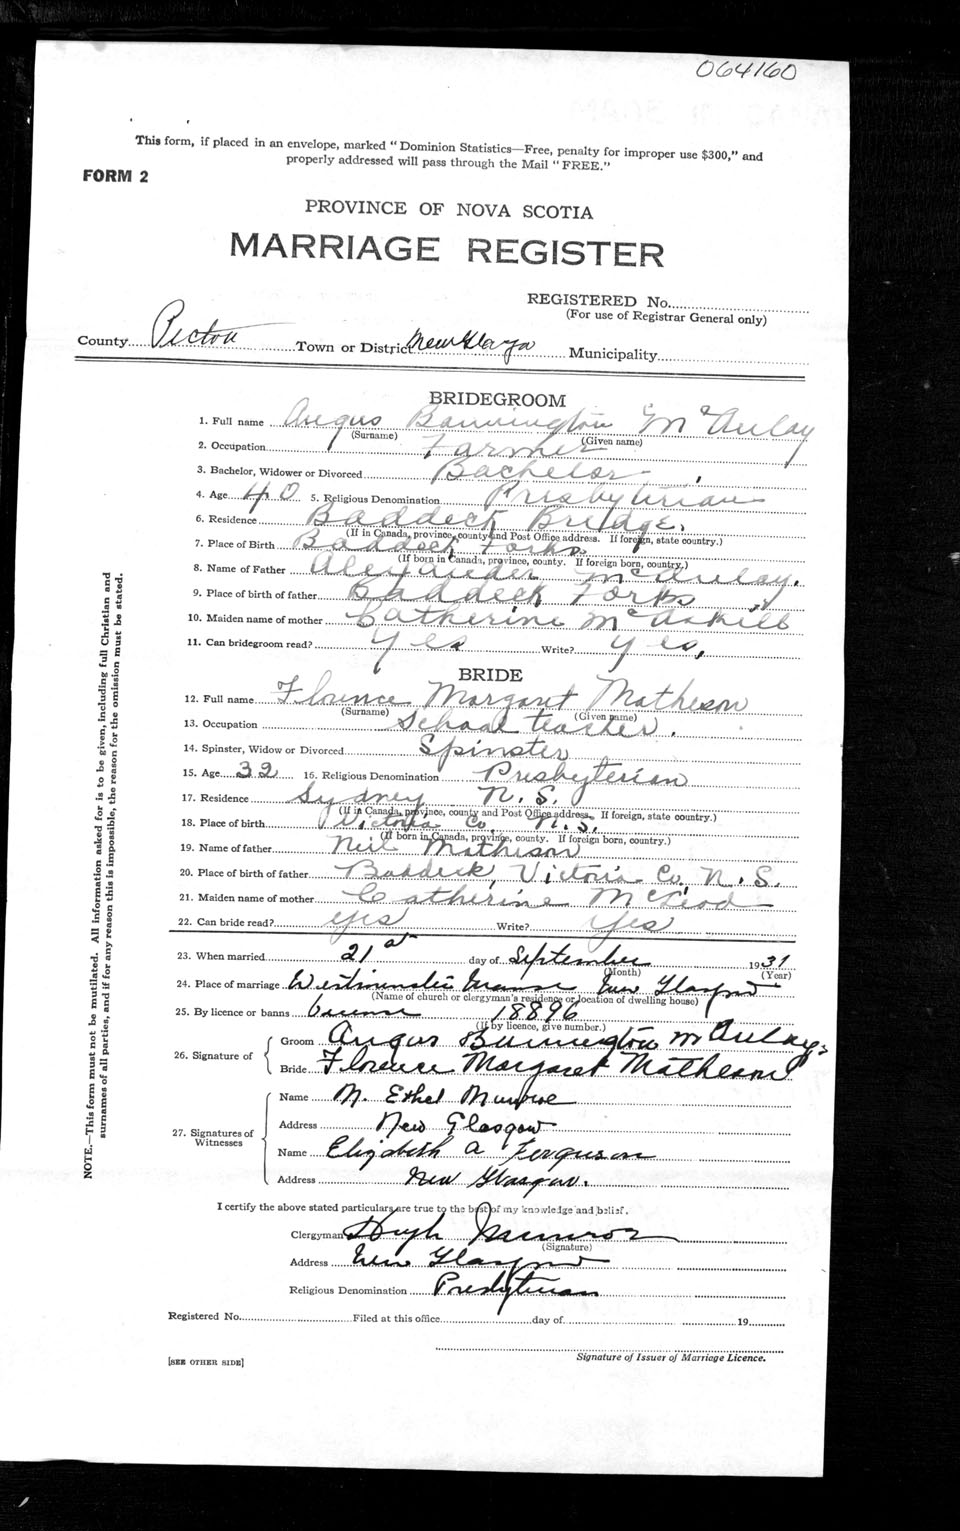 064160
This form, if placed in an envelope, marked "Dominion Statistics—Free, penalty for improper use $300," and
properly addressed will pass through the Mail "FREE."
FORM 2
PROVINCE OF NOVA SCOTIA
MARRIAGE REGISTER
REGISTERED No.
(For use of Registrar General only)
County Pictou Town or District New Glasgow Municipality
BRIDEGROOM
1. Full name Angus Bannington McAulay
(Surname) (Given name)
2. Occupation Farmer
3. Bachelor, Widower or Divorced Bachelor
4. Age 40 5. Religious Denomination Presbyterian
6. Residence Baddeck Bridge.
(If in Canada, province, county and Post Office address. If foreign, state country.)
7. Place of Birth Baddeck Forks
(If born in Canada, province, county. If foreign born, country.)
8. Name of Father Alexander McAulay.
9. Place of birth of father Baddeck Forks
10. Maiden name of mother Catherine McAskill
11. Can bridegroom read? Yes Write? Yes,
BRIDE
12. Full name Florence Margaret Matheson
(Surname) (Given name)
13. Occupation School teacher.
14. Spinster, Widow or Divorced Spinster
15. Age 32 16. Religious Denomination Presbyterian
17. Residence Sydney N.S.
(If in Canada, province, county and Post Office address. If foreign, state country.)
18. Place of birth Victoria Co. N.S.
(If born in Canada, province, county. If foreign born, country.)
19. Name of father Neil Matheson
20. Place of birth of father Baddeck, Victoria Co. N.S.
21. Maiden name of mother Catherine McLeod
22. Can bride read? Yes Write? Yes
23. When married 21st day of September 1931
(Month) (Year)
24. Place of marriage Westminster Manse New Glasgow
(Name of church or clergyman's residence or location of dwelling house)
25. By licence or banns License 18896
(If by licence, give number.)
26. Signature of
Groom Angus Bannington McAulay
Bride Florence Margaret Matheson
27. Signatures of
Witnesses
Name M. Ethel Munroe
Address New Glasgow
Name Elizabeth A Ferguson
Address New Glasgow.
I certify the above stated particulars are true to the best of my knowledge and belief.
Clergyman Hugh Munroe
(Signature)
Address New Glasgow
Religious Denomination Presbyterian
Registered No. Filed at this office day of 19
Signature of Issuer of Marriage Licence.
[SEE OTHER SIDE]
NOTE.—This form must not be mutilated. All information asked for is to be given, including full Christian and
surnames of all parties, and if for any reason this is impossible, the reason for the omission must be stated.